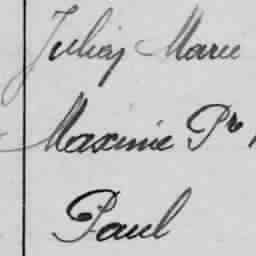 Julien Marie
Maxime Pre
Paul